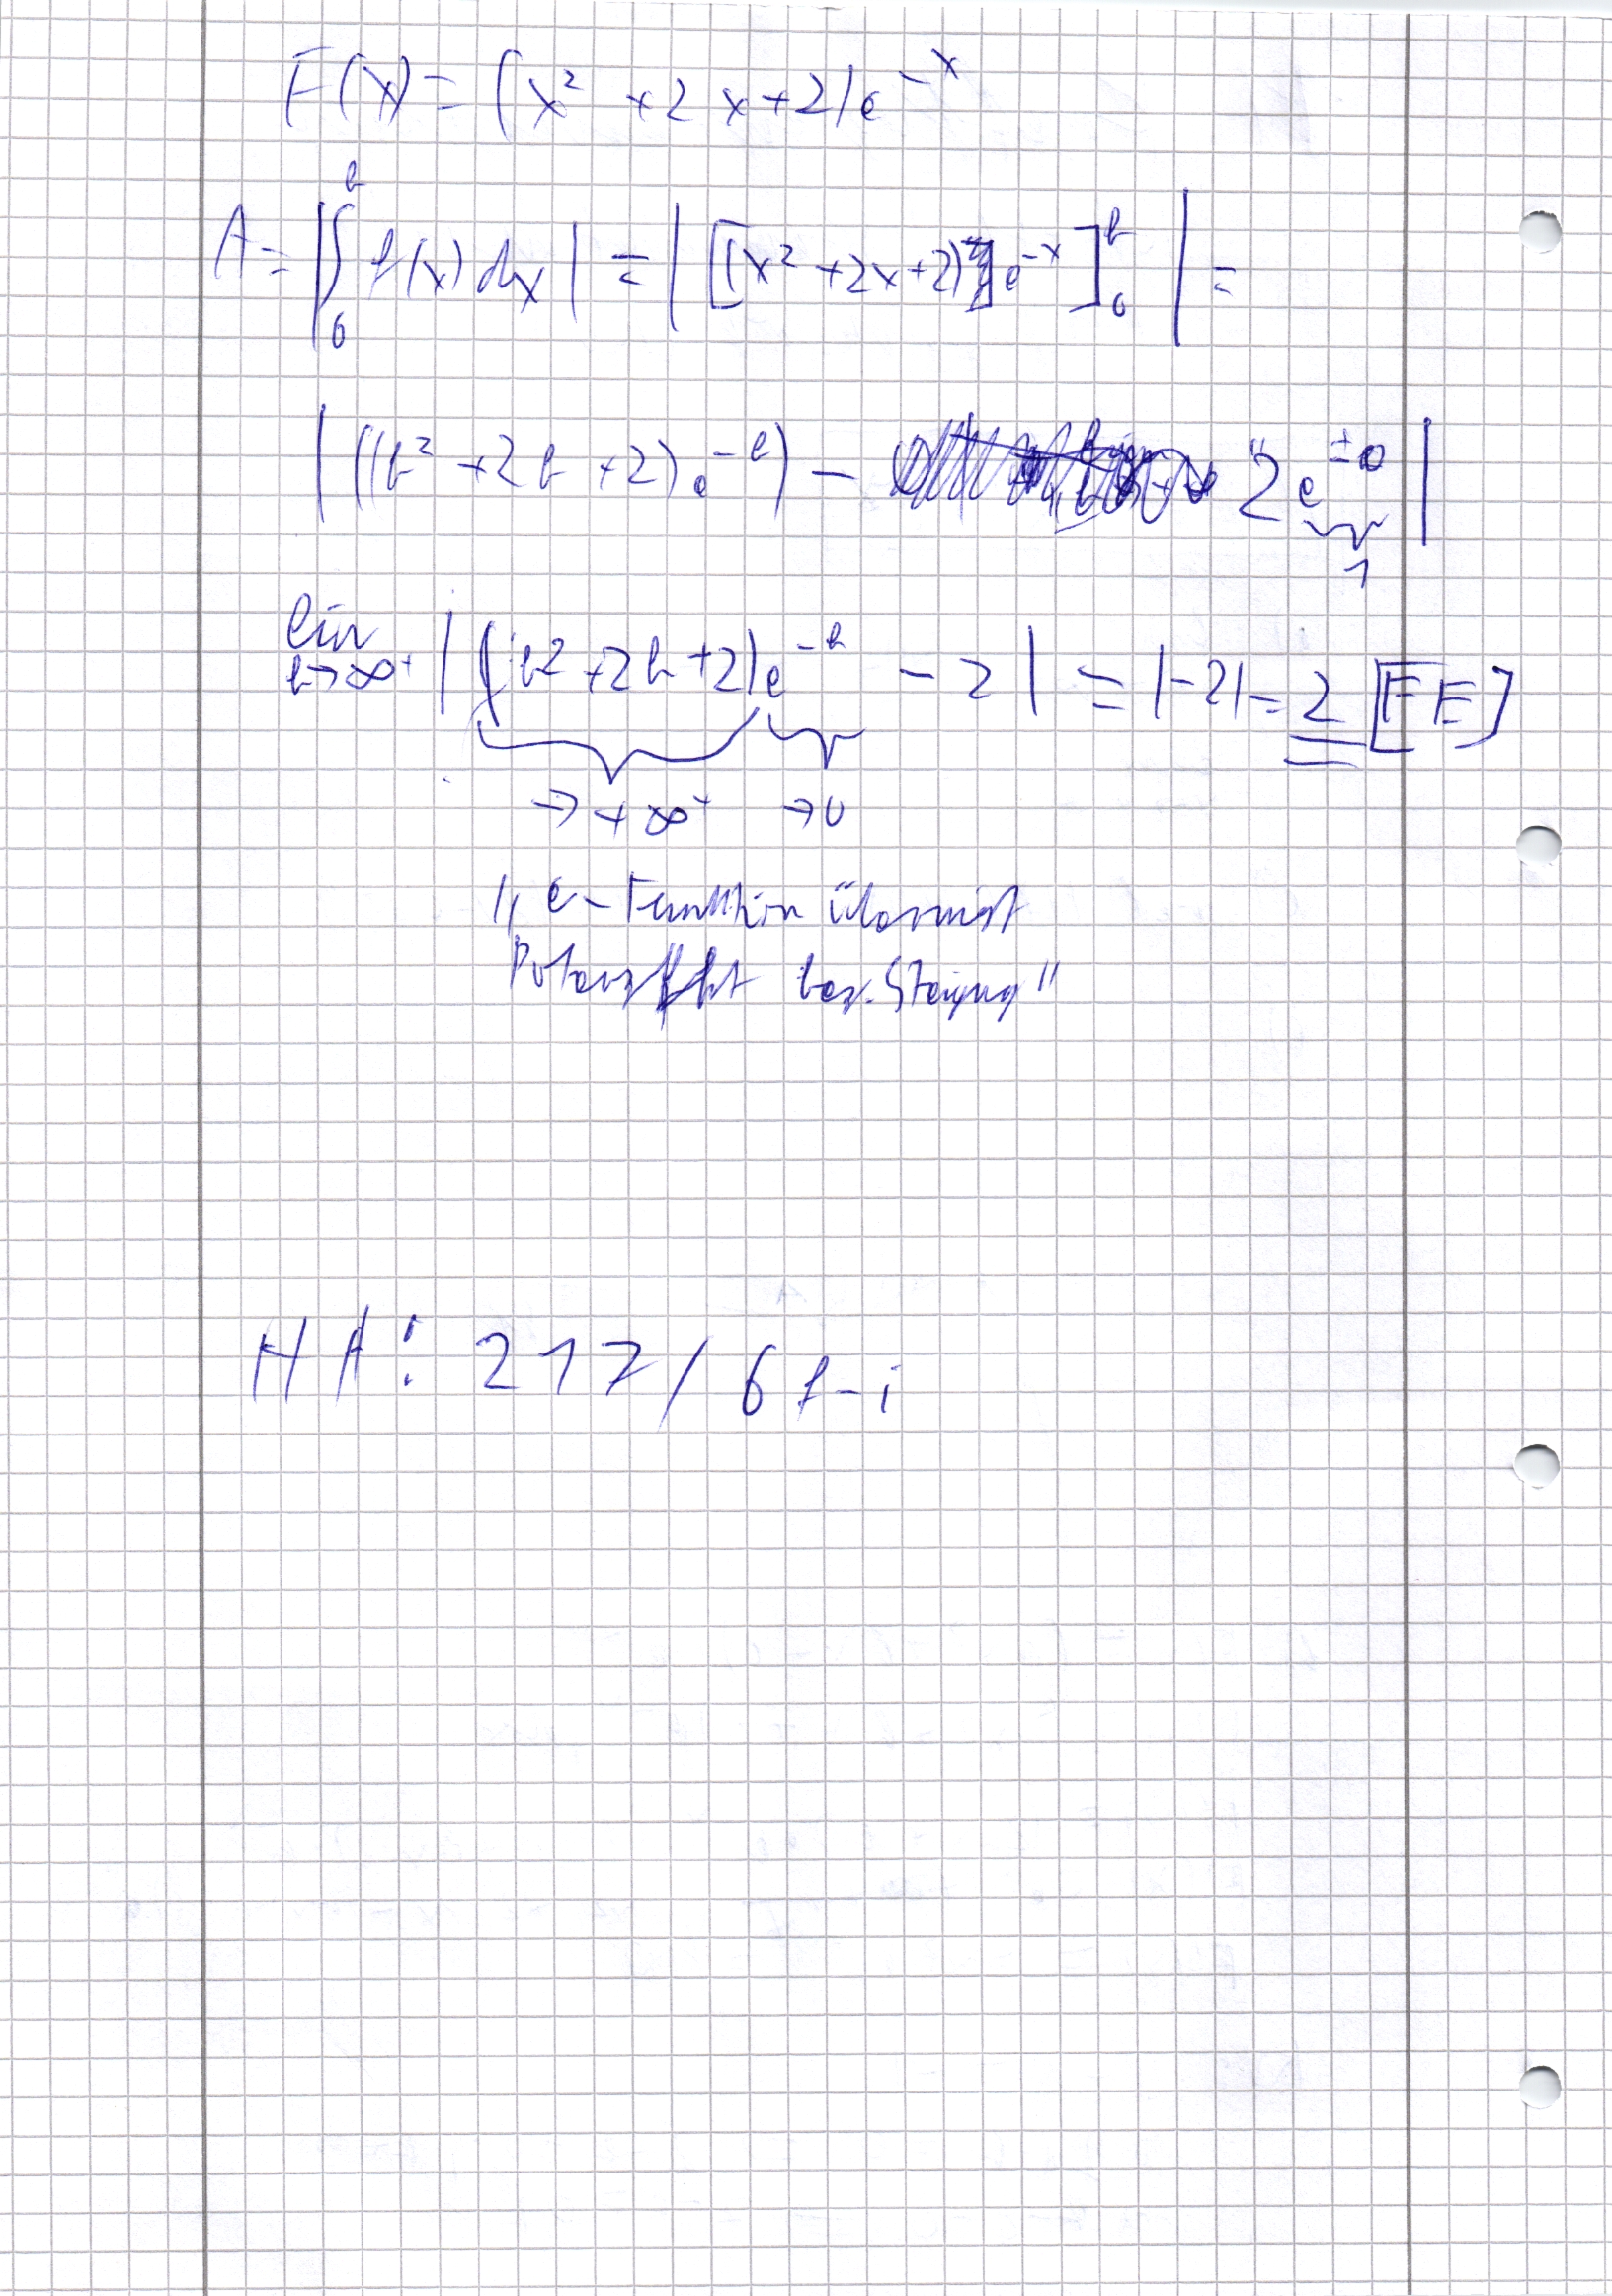 F(x) = (x² + 2x + 2) e^-x
A = |∫₀^k f(x) dx| = |[(x² + 2x + 2) e^-x]₀^k| =
|((k² + 2k + 2) e^-k) - 2e^±0|
1
lim k→∞ |(k² + 2k + 2) e^-k - 2| = |-2| = 2 [FE]
→ + ∞ → 0
„e-Funktion überwiegt
Potenzfkt bez. Steigung"
HA: 217/6 f-i